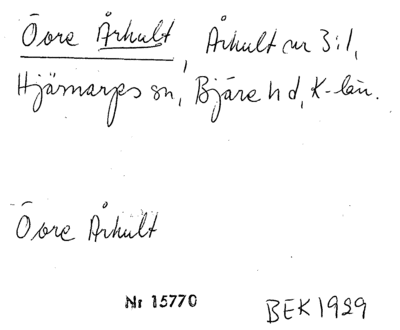 Övre Århult, Århult nr 3:1,
Hjärnarps sn, Bjäre hd, K-län.
Övre Århult
Nr 15770
BEK 1929